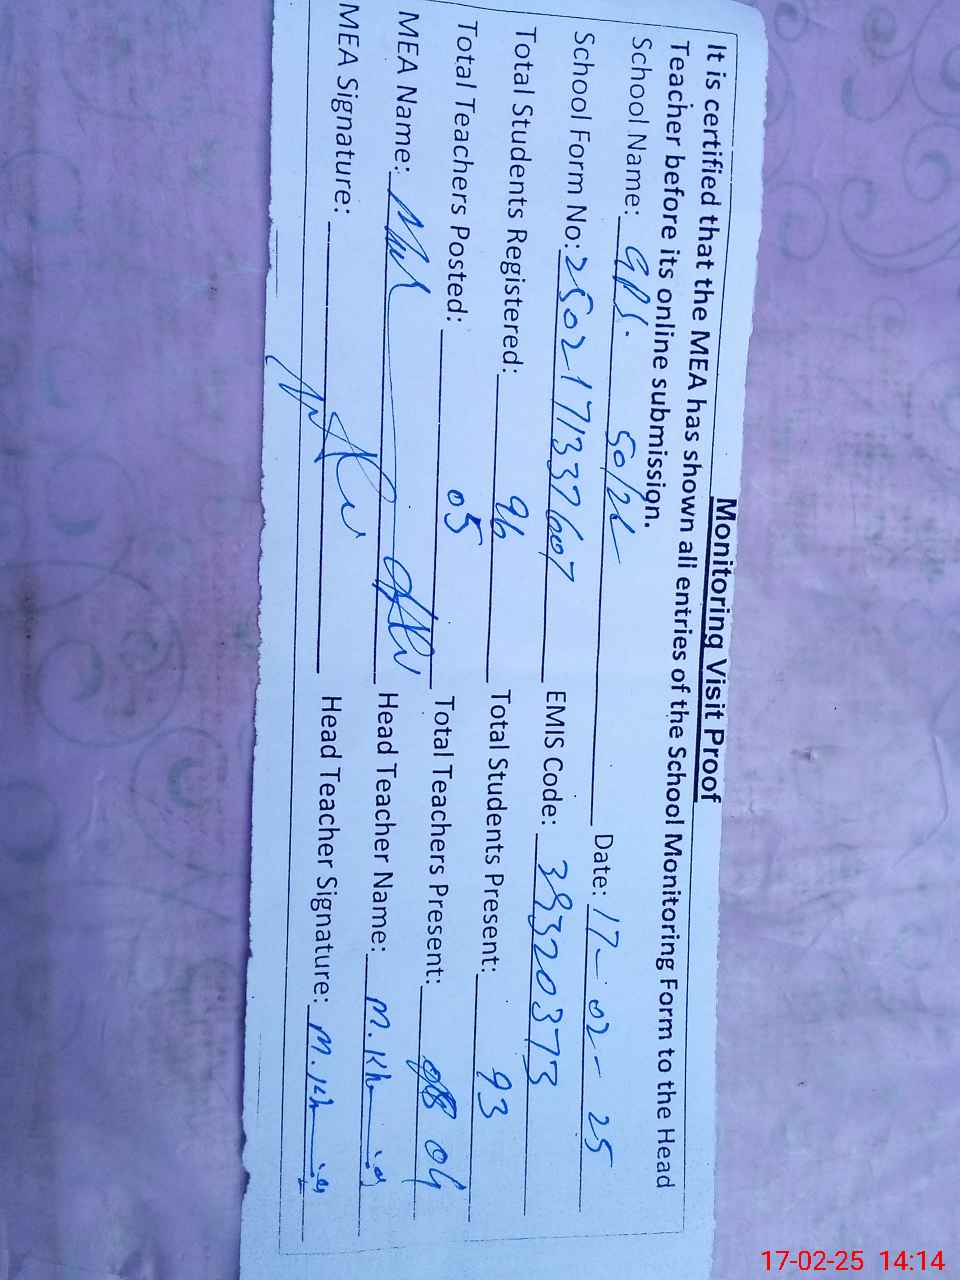 Monitoring Visit Proof
It is certified that the MEA has shown all entries of the School Monitoring Form to the Head
Teacher before its online submission.
School Name: GPS. 50/2L Date: 17-02-25
School Form No: 2502171337607 EMIS Code: 39320373
Total Students Registered: 96 Total Students Present: 93
Total Teachers Posted: 05 Total Teachers Present: 04
MEA Name: Head Teacher Name: M.
MEA Signature: Head Teacher Signature: M.
17-02-25 14:14